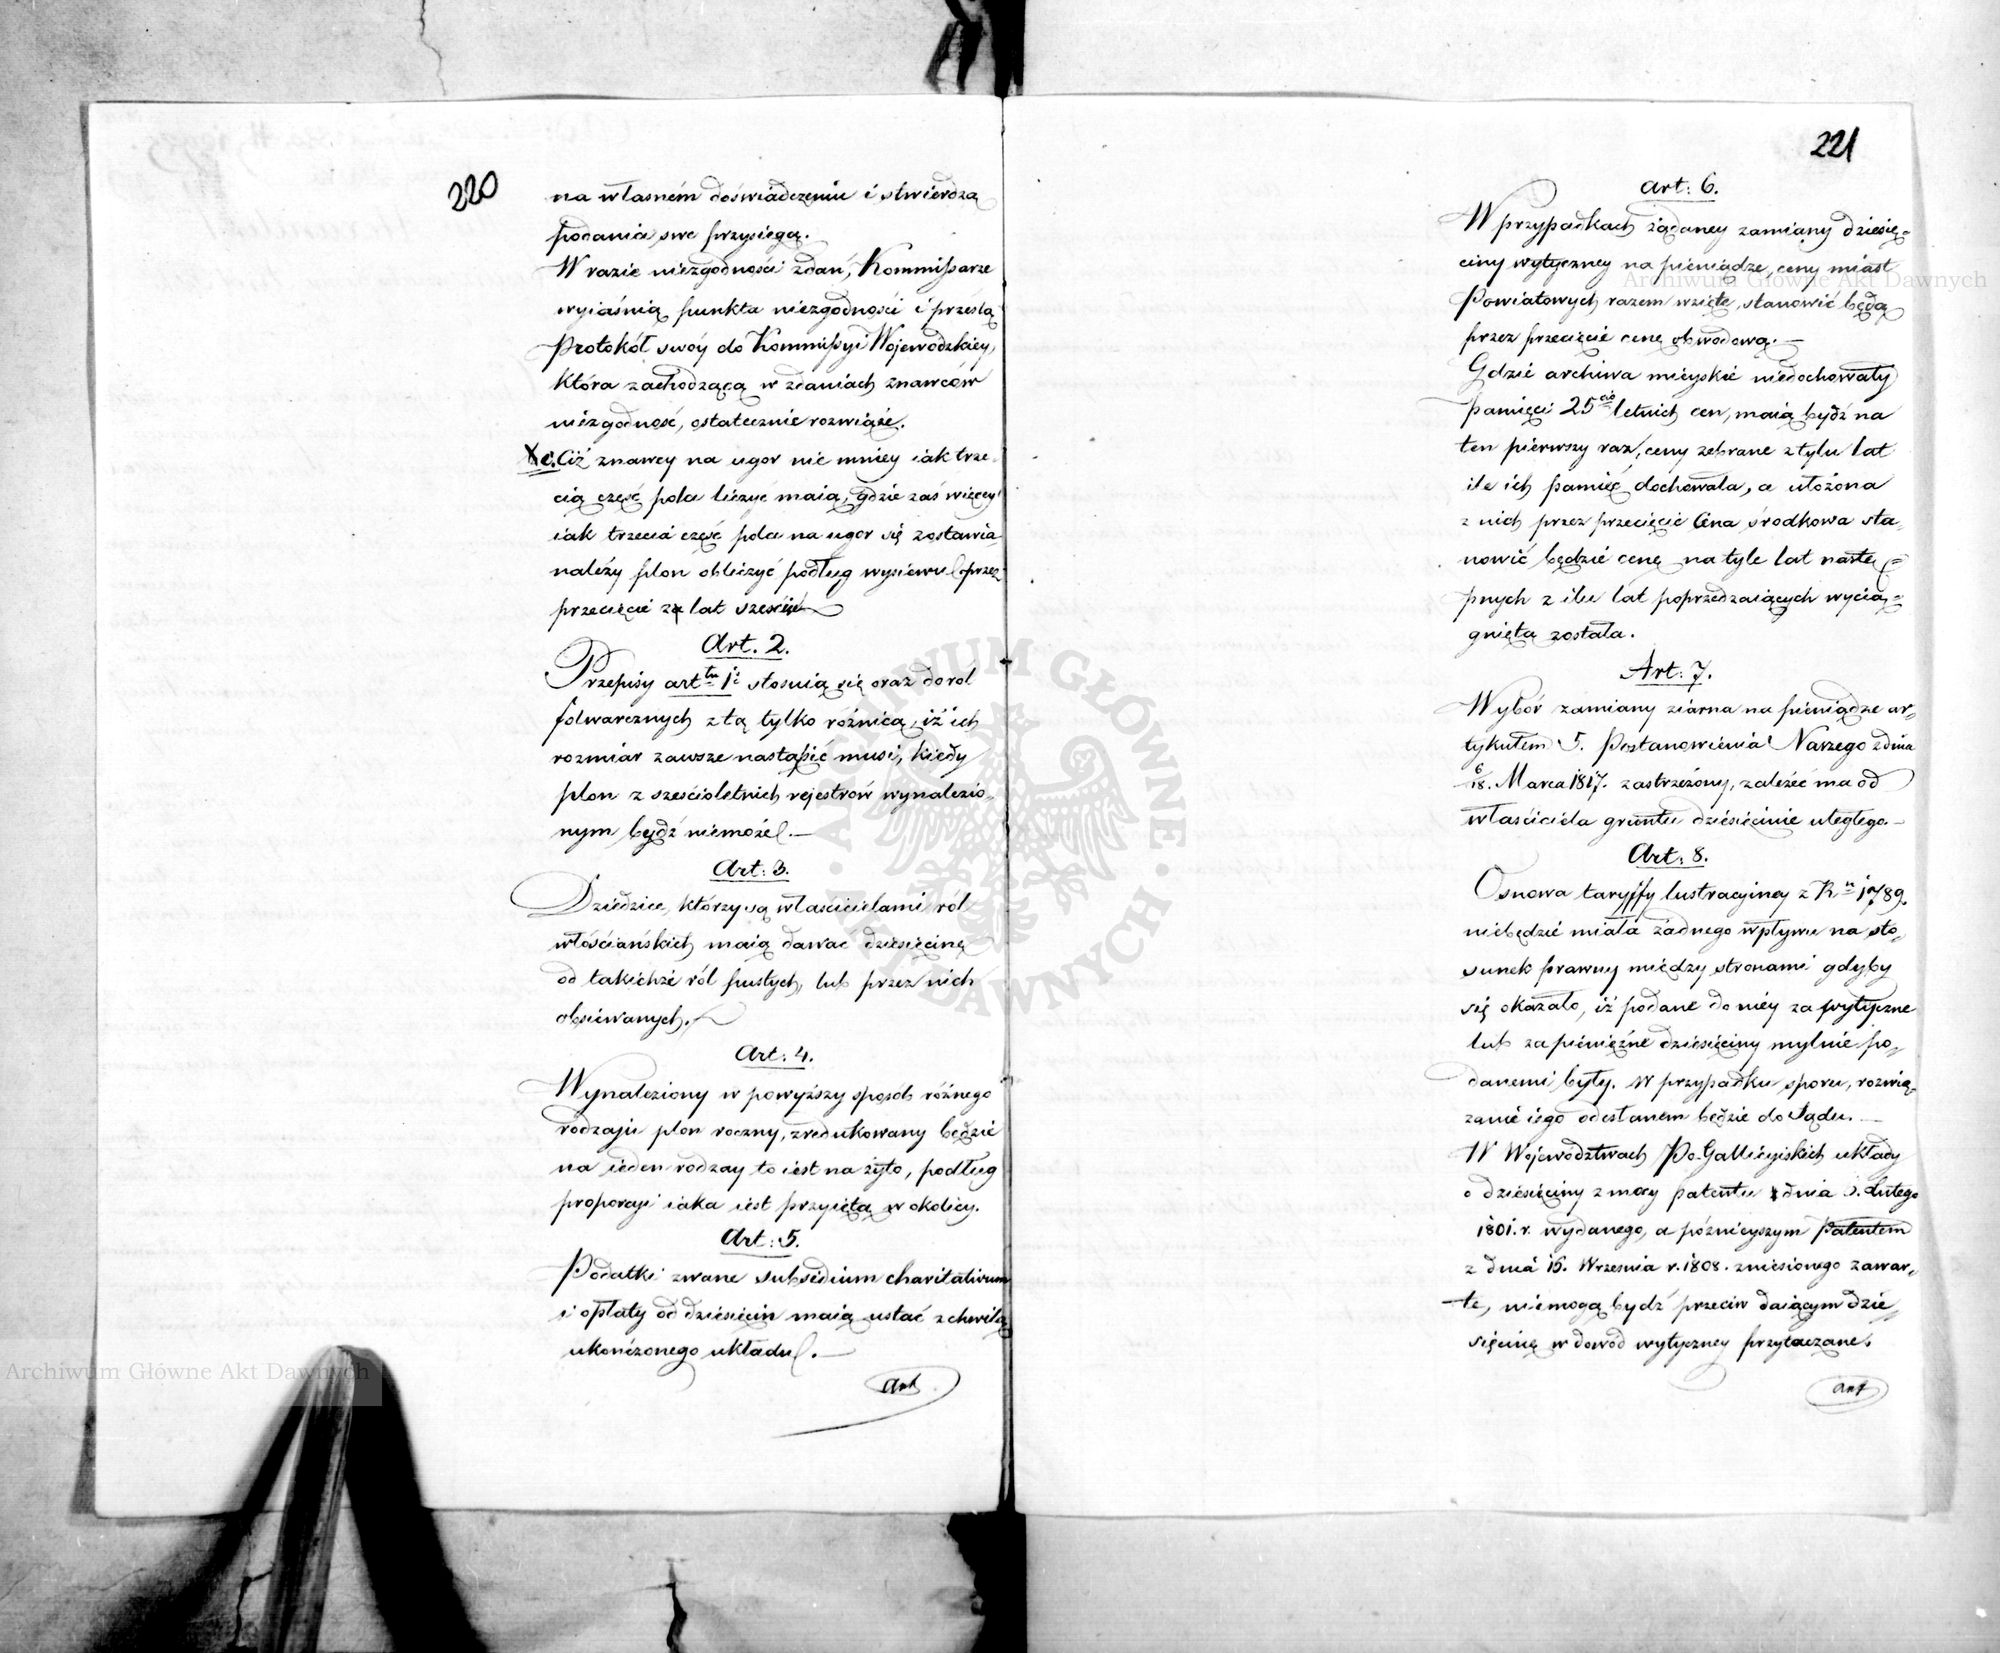 220
na własném doświadczeniu i stwierdzą
podania swe przysięgą.
W razie niezgodności zdań, Kommissarze
wyiaśnią punkta niezgodności i prześlą
Protokół swóy do Kommissyi Wojewodzkiey,
która zachodzącą w zdaniach znawców
niezgodność, ostatecznie rozwiąże.
c. Ciż znawcy na ugor nie mniey iak trze-
cią część pola liczyć maią, gdzie zaś więcey
iak trzecia część pola na ugor się zostawia
należy plon obliczyć podług wysiewu przez
przecięcie za lat sześcię
Art. 2.
Przepisy arttu 1. stosuią się oraz do ról
folwarcznych z tą tylko różnicą, iż ich
rozmiar zawsze nastąpić musi, kiedy
plon z sześcioletnich rejestrów wynalezio-
nym bydź niemoże.—
Art: 3.
Dziedzice, którzy są właścicielami ról
włościańskich maią dawać dziesięcinę
od takichże ról pustych, lub przez nich
obsiewanych.
Art: 4.
Wynaleziony w powyższy sposób różnego
rodzaju plon roczny, zredukowany będzie
na ieden rodzay to iest na żyto, podług
proporcyi iaka iest przyięta w okolicy.
Art: 5.
Podatki zwane subsidium charitativum
i opłaty od dziesięcin maią ustać z chwilą
ukończonego układu.—
Art
221
Art: 6.
W przypadkach żądaney zamiany dziesię-
ciny wytyczney na pieniądze, ceny miast
Powiatowych razem wzięte, stanowić będą
przez przecięcie cenę obwodową.—
Gdzie archiwa mieyskie niedochowały
pamięci 25cio letnich cen, maią bydź na
ten pierwszy raz, ceny zebrane z tylu lat
ile ich pamięć dochowała, a ułożona
z nich przez przecięcie Cena środkowa sta-
nowić będzie cenę na tyle lat nastę-
pnych z ilu lat poprzedzaiących wycią-
gnięta została.
Art: 7.
Wybór zamiany ziarna na pieniądze ar-
tykułem 5. Postanowienia Naszego z dnia
6/18. Marca 1817. zastrzeżony, zależeć ma od
właściciela gruntu dziesięcinie uległego.—
Art: 8.
Osnowa taryffy lustracyiney z Ru 1789.
niebędzie miała żadnego wpływu na sto-
sunek prawny między stronami gdyby
się okazało, iż podane do niey za wytyczne
lub za pieniężne dziesięciny mylnie po-
danemi były. W przypadku sporu, rozwią-
zanie iego odesłanem będzie do Sądu.—
W Województwach Po-Gallicyiskich układy
o dziesięciny z mocy patentu dnia 5. Lutego
1801. r. wydanego, a późnieyszym Patentem
z dnia 15. Września r. 1808. zniesionego zawar-
te, niemogą bydź przeciw daiącym dzie-
sięcinę w dowód wytyczney przytaczane.
Art
Archiwum Główne Akt Dawnych
Archiwum Główne Akt Dawnych
ARCHIWUM GŁÓWNE AKT DAWNYCH